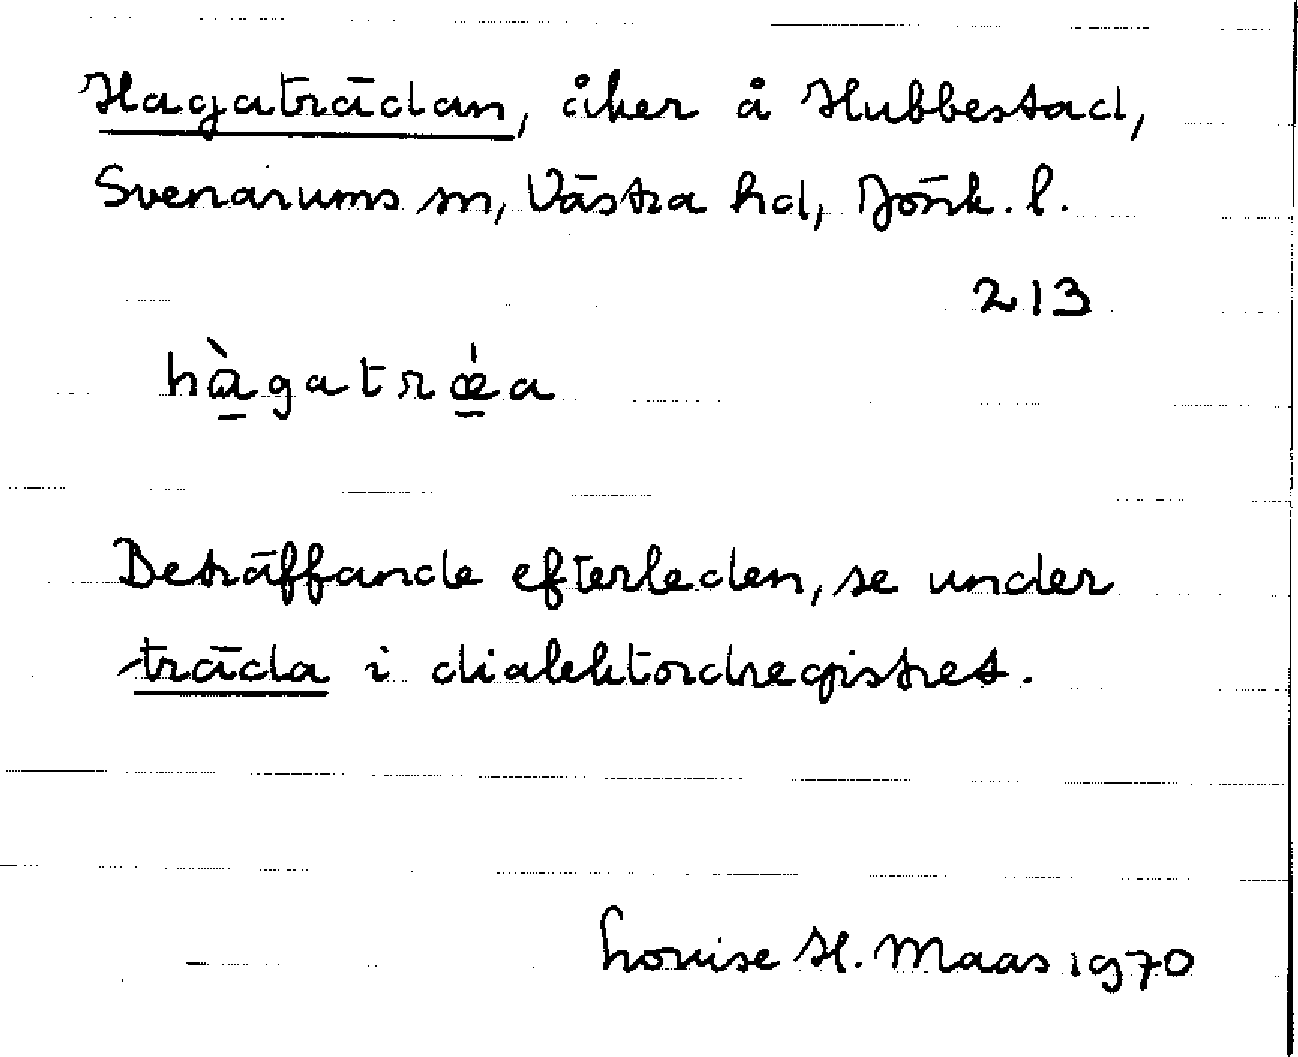 Hagaträdan, åker å Hubbestad,
Svenarums sn, Västra hd, Jönk. l.
213
hà̱gatrǽ̱a
Beträffande efterleden, se under
träda i dialektordregistret.
Louise H. Maas 1970